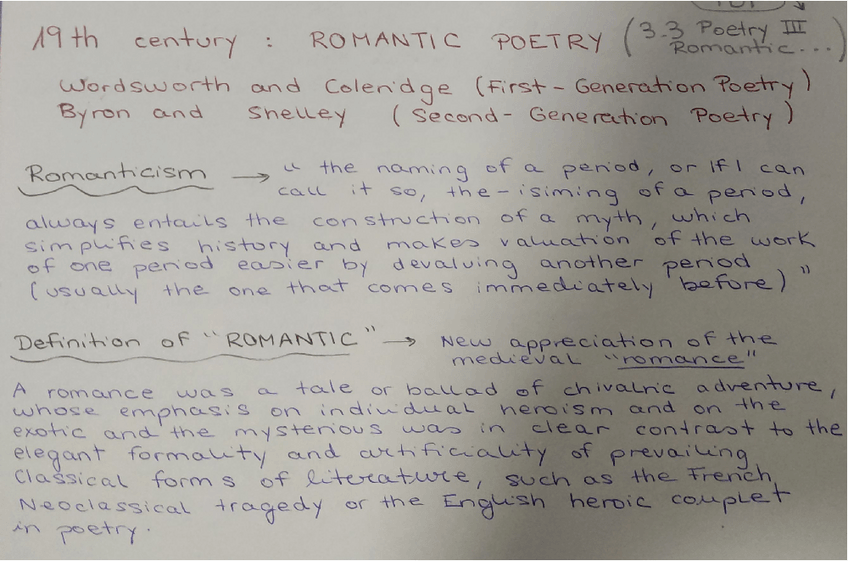 19th century : ROMANTIC POETRY (3.3 Poetry III
Romantic...)
Wordsworth and Coleridge (First-Generation Poetry)
Byron and Shelley (Second-Generation Poetry)
Romanticism → " the naming of a period, or if I can
call it so, the-isiming of a period,
always entails the construction of a myth, which
simplifies history and makes valuation of the work
of one period easier by devaluing another period
(usually the one that comes immediately before) "
Definition of "ROMANTIC" → New appreciation of the
medieval "romance"
A romance was a tale or ballad of chivalric adventure,
whose emphasis on individual heroism and on the
exotic and the mysterious was in clear contrast to the
elegant formality and artificiality of prevailing
Classical forms of literature, such as the French
Neoclassical tragedy or the English heroic couplet
in poetry.